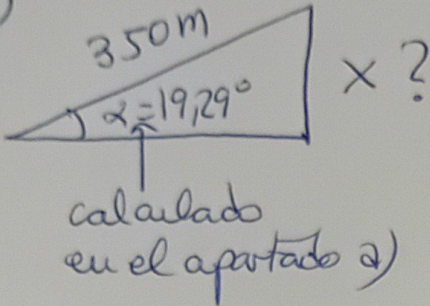 350m
α = 19,29°
x ?
calculado
en el apartado a)